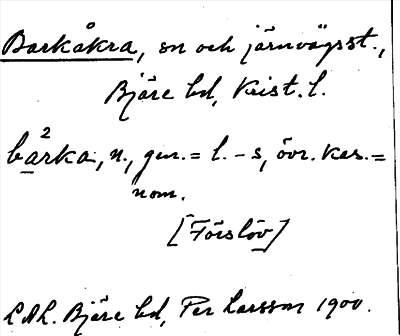 Barkåkra, sn och järnvägsst.,
Bjäre hd, Krist. l.
bạ²rka, n., gen. = l. -s, övr. kas. =
nom.
[Förslöv]
LAL. Bjäre hd, Per Larsson 1900.